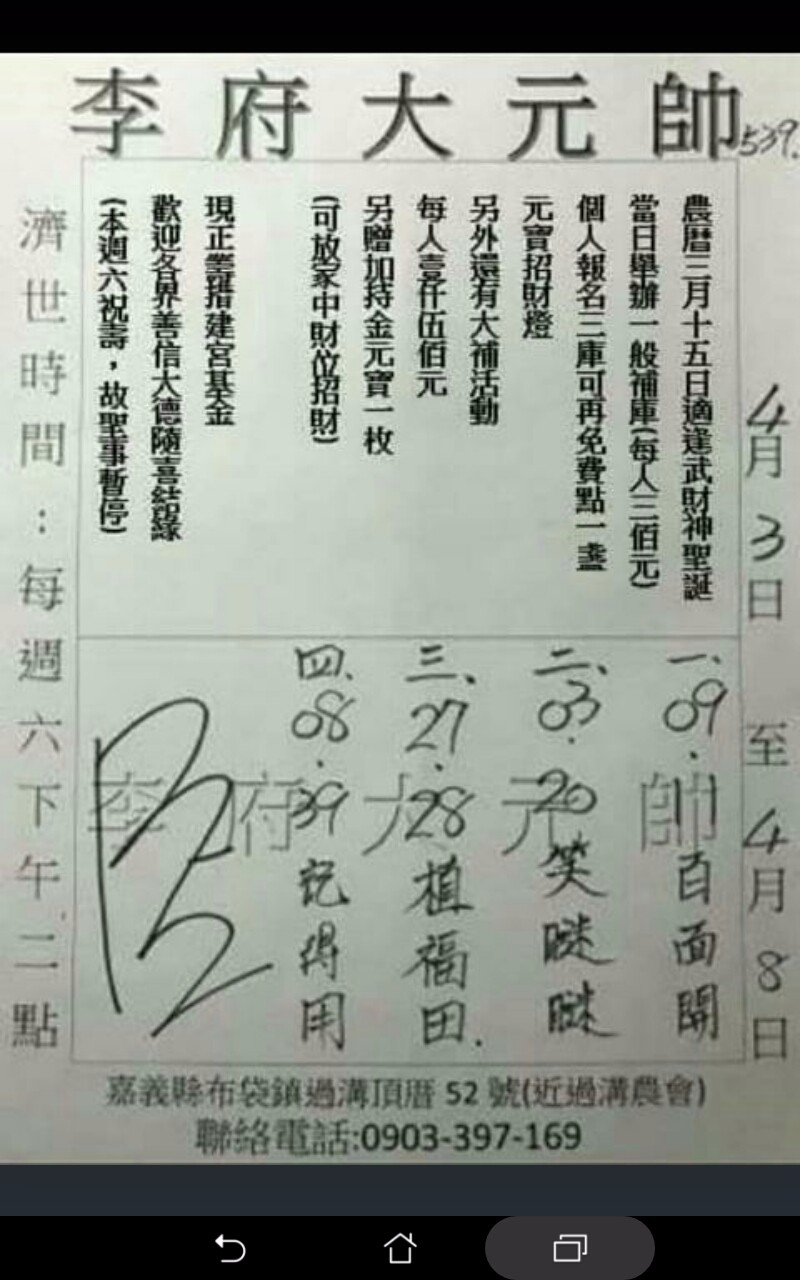 李府大元帥
539.
農曆三月十五日適逢武財神聖誕
當日舉辦一般補庫(每人三佰元)
個人報名三庫可再免費點一盞
元寶招財燈
另外還有大補活動
每人壹仟伍佰元
另贈加持金元寶一枚
(可放家中財位招財)
現正籌建宮基金
歡迎各界善信大德隨喜結緣
(本週六祝壽，故聖事暫停)
4月3日 至 4月8日
一、09.11百面開
二、03.20笑瞇瞇
三、27.28植福田.
四、08.39記得用
李府大元帥
濟世時間：每週六下午二點
嘉義縣布袋鎮過溝頂厝 52 號(近過溝農會)
聯絡電話:0903-397-169